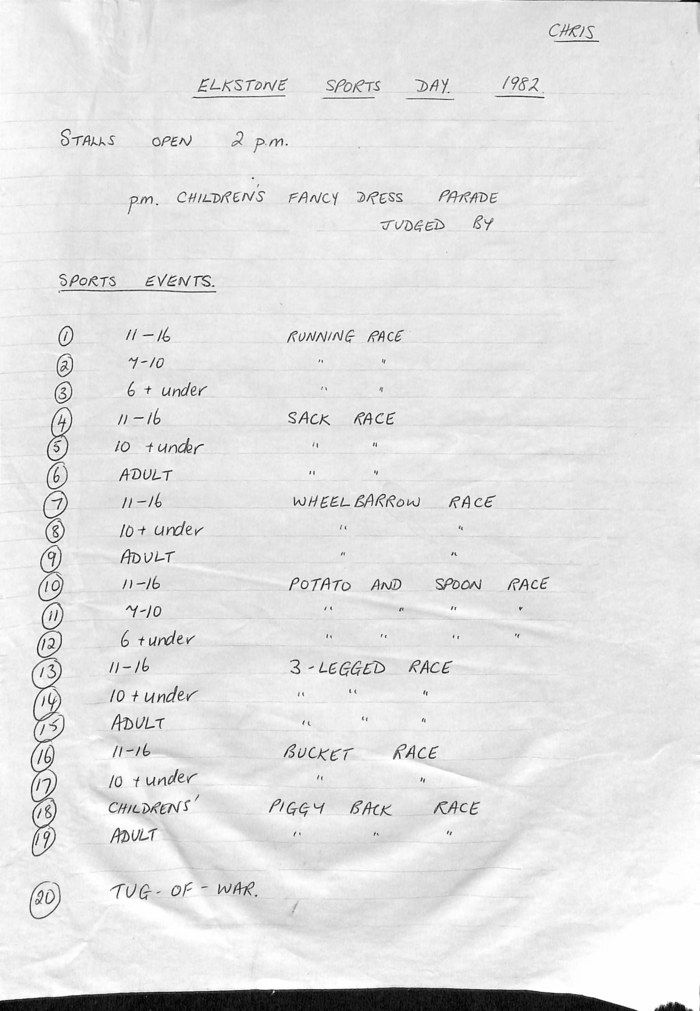 CHRIS
ELKSTONE SPORTS DAY. 1982.
STALLS OPEN 2 p.m.
p.m. CHILDREN'S FANCY DRESS PARADE
JUDGED BY
SPORTS EVENTS.
1 11-16 RUNNING RACE
2 7-10 " "
3 6 + under " "
4 11-16 SACK RACE
5 10 + under " "
6 ADULT " "
7 11-16 WHEELBARROW RACE
8 10 + under " "
9 ADULT " "
10 11-16 POTATO AND SPOON RACE
11 7-10 " " " "
12 6 + under " " " "
13 11-16 3-LEGGED RACE
14 10 + under " " "
15 ADULT " " "
16 11-16 BUCKET RACE
17 10 + under " "
18 CHILDRENS' PIGGY BACK RACE
19 ADULT " " "
20 TUG-OF-WAR.